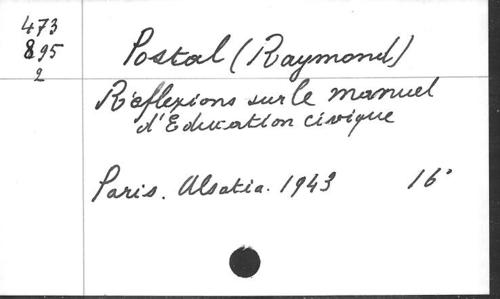 473
895
2
Postal (Raymond)
Réflexions sur le manuel
d'Education civique
Paris. Alsatia. 1943 16°